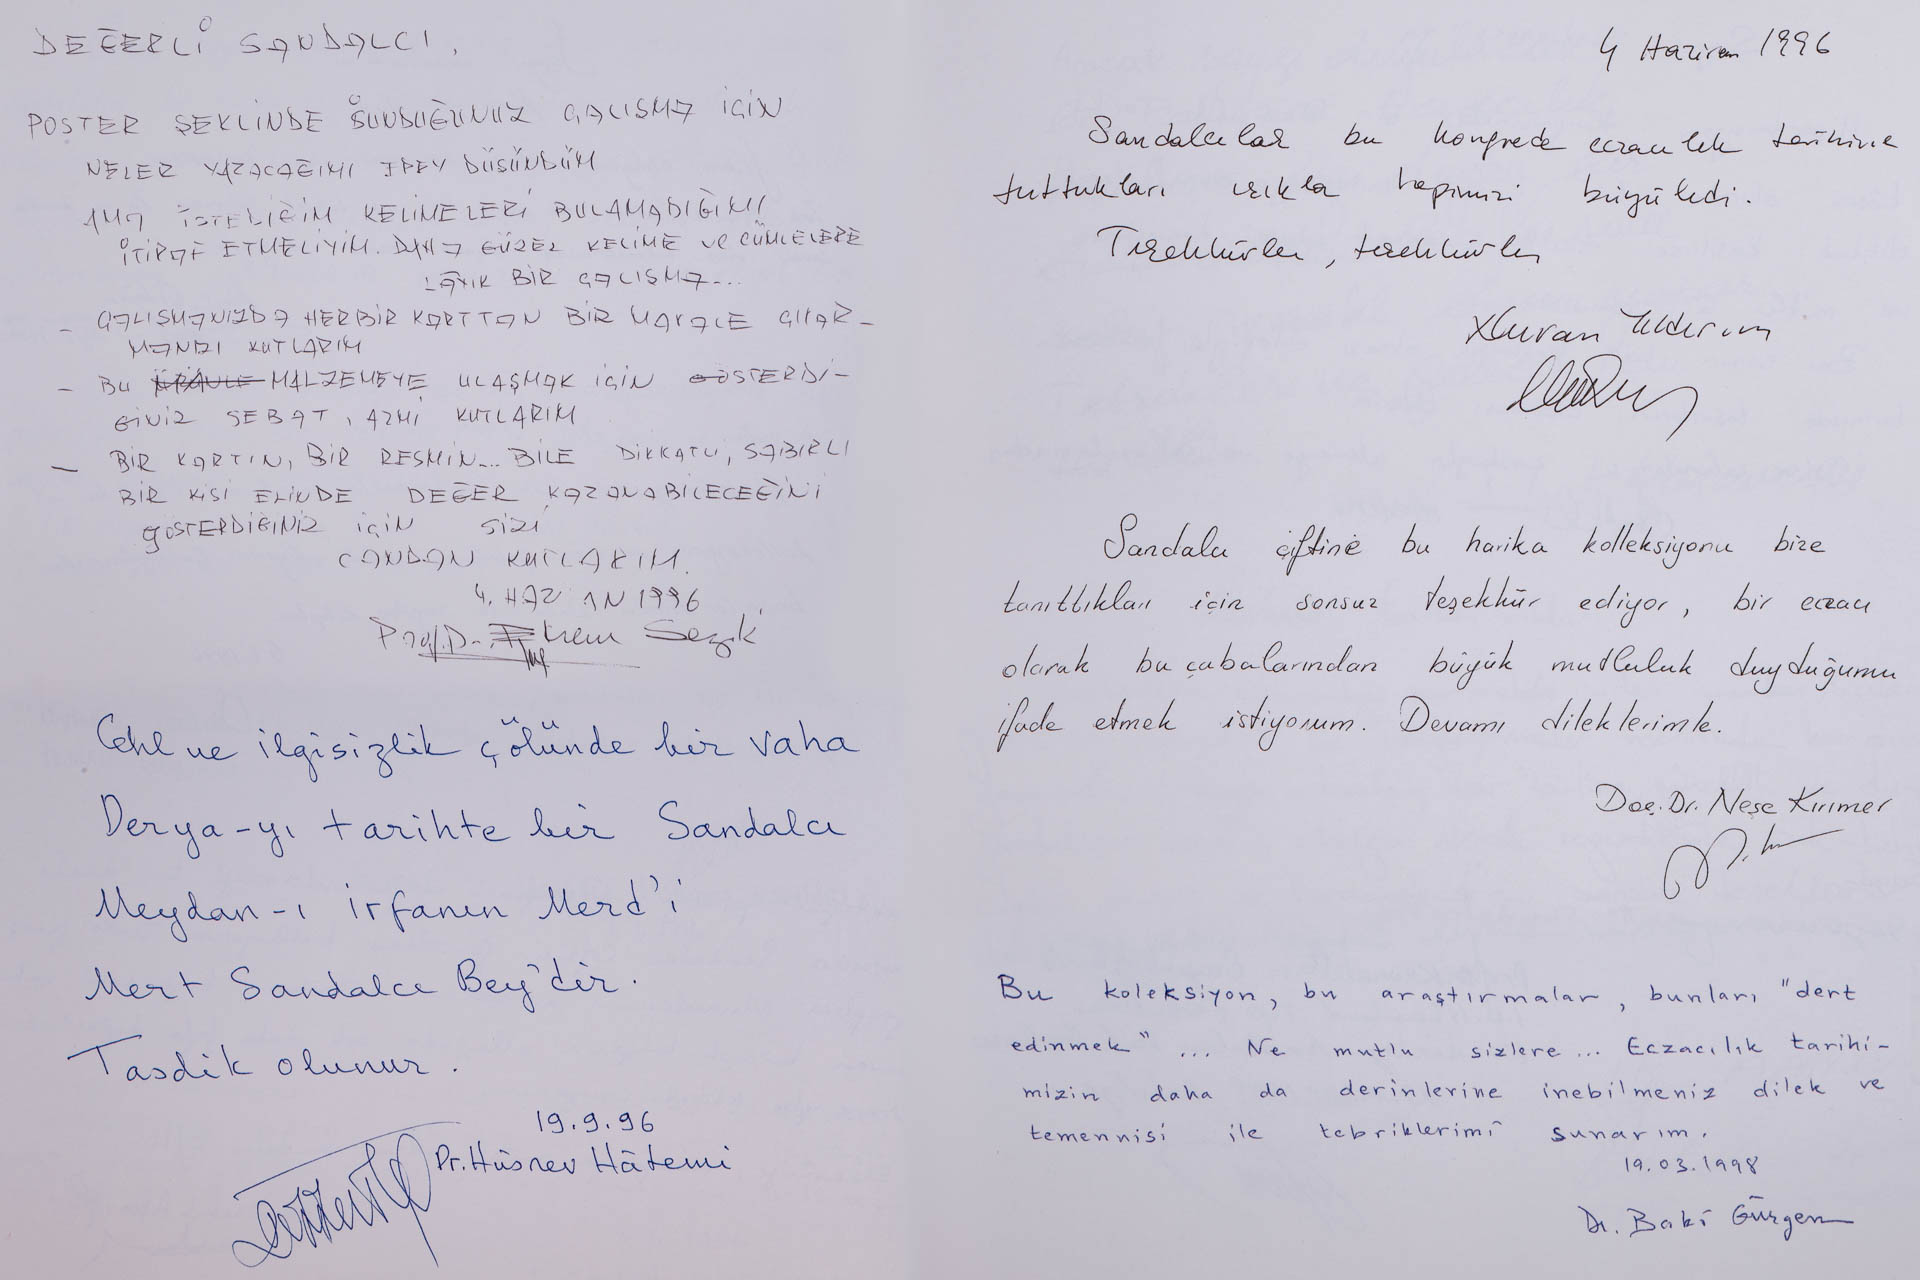 DEĞERLİ SANDALCI,
POSTER ŞEKLİNDE SUNDUĞUNUZ ÇALIŞMA İÇİN
NELER YAZACAĞIMI EPEY DÜŞÜNDÜM
AMA İSTEDİĞİM KELİMELERİ BULAMADIĞIMI
İTİRAF ETMELİYİM. DAHA GÜZEL KELİME VE CÜMLELERE
LAYIK BİR ÇALIŞMA...
- ÇALIŞMANIZDA HERBİR KARTTAN BİR MAKALE ÇIKAR-
MANIZI KUTLARIM
- BU MALZEMEYE ULAŞMAK İÇİN GÖSTERDİ-
ĞİNİZ SEBAT, AZMİ KUTLARIM
- BİR KARTIN, BİR RESMİN... BİLE DİKKATLİ, SABIRLI
BİR KİŞİ ELİNDE DEĞER KAZANABİLECEĞİNİ
GÖSTERDİĞİNİZ İÇİN SİZİ
CANDAN KUTLARIM.
4. HAZİRAN 1996
Prof. Dr. Ekrem Sezik
Cehl ve ilgisizlik çölünde bir vaha
Derya-yı tarihte bir Sandalcı
Meydan-ı irfanın Merd'i
Mert Sandalcı Bey'dir.
Tasdik olunur.
19.9.96
Dr. Hüsrev Hâtemi
4 Haziran 1996
Sandalcılar bu kongrede eczacılık tarihine
tuttukları ışıkla hepimizi büyüledi.
Teşekkürler, teşekkürler
Yıldırım
Sandalcı çiftine bu harika kolleksiyonu bize
tanıttıkları için sonsuz teşekkür ediyor, bir eczacı
olarak bu çabalarından büyük mutluluk duyduğumu
ifade etmek istiyorum. Devamı dileklerimle.
Doç. Dr. Neşe Kırımer
Bu koleksiyon, bu araştırmalar, bunları "dert
edinmek" ... Ne mutlu sizlere... Eczacılık tarihi-
mizin daha da derinlerine inebilmeniz dilek ve
temennisi ile tebriklerimi sunarım.
19.03.1998
Dr. Baki Gürgen